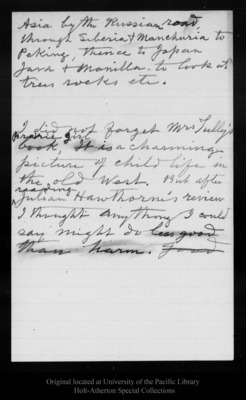 Asia by the Russian road
through Siberia & Manchuria to
Peking, thence to Japan
Java & Manilla to look at
trees rocks etc.
I did not forget Mrs Tully's
Prairie Girl
book. It is a charming
picture of child life in
the old West. But after
reading
Julian Hawthorne's review
I thought anything I could
say might do less good
than harm.
Original located at University of the Pacific Library
Holt-Atherton Special Collections